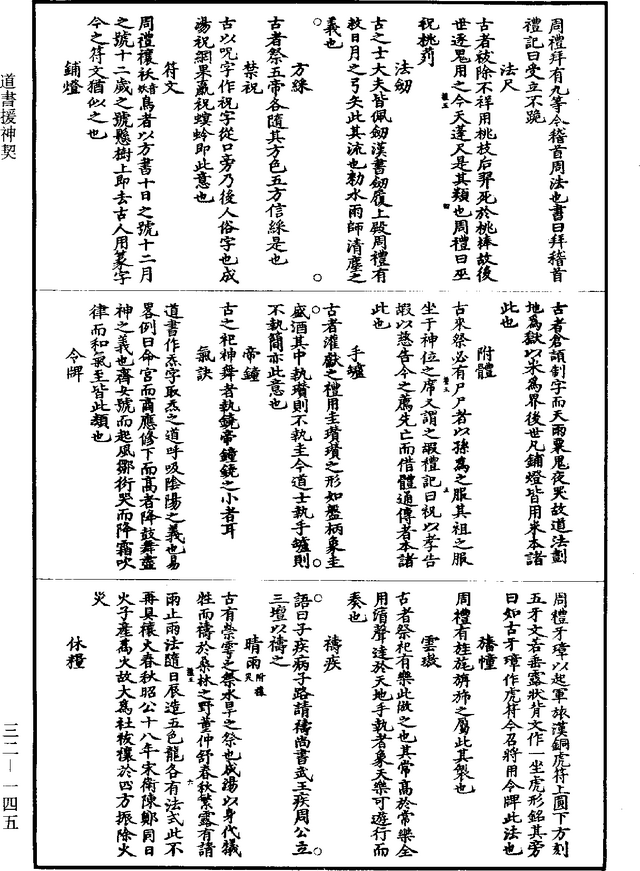 周禮拜有九等今稽首周法也書曰拜稽首
禮記曰受立不跪
法尺
古者祓除不祥用桃枝后羿死於桃棒故後
世逐鬼用之今天蓬尺是其類也周禮曰巫
祝桃茢
法劒
古之士大夫皆佩劒漢書劒履上殿周禮有
救日月之弓矢此其流也勅水雨師清塵之
義也
方綵
古者祭五帝各隨其方色五方信綵是也
禁祝
古以呪字作祝字從口旁乃後人俗字也成
湯祝網果蠃祝螟蛉即此意也
符文
周禮禳祅鳥者以方書十日之號十二月
之號十二歲之號懸樹上即去古人用篆字
今之符文猶似之也
鋪燈
古者倉頡制字而天雨粟鬼夜哭故道法劃
地為獄以米為界後世凡鋪燈皆用米本諸
此也
附體
古來祭必有尸尸者以孫為之服其祖之服
坐于神位之席又謂之嘏禮記曰祝以孝告
嘏以慈告今之薦先亡而借體通傳者本諸
此也
手爐
古者灌獻之禮用圭瓚瓚之形如盤柄象圭
盛酒其中執瓚則不執圭今道士執手爐則
不執簡亦此意也
帝鐘
古之祀神舞者執鐃帝鐘鐃之小者耳
氣訣
道書作炁字取炁之道呼吸陰陽之義也易
畧例曰命宮而商應修下而高者降鼓舞盡
神之義也齊女號而起風鄒衍哭而降霜吹
律而和氣至皆此類也
令牌
周禮牙璋以起軍旅漢銅虎符上圓下方刻
五牙文若垂露狀背文作一坐虎形銘其旁
曰如古牙璋作虎符今召將用令牌此法也
旛幢
周禮有旌旄旂斾之屬此其製也
雲璈
古者祭祀有樂此倣之也其常高於常樂全
用清聲達於天地手執者象天樂可遊行而
奏也
禱疾
語曰子疾病子路請禱尚書武王疾周公立
三壇以禱之
晴雨附禳災
古有禜雩之祭水旱之祭也成湯以身代犧
牲而禱於桑林之野董仲舒春秋繁露有請
雨止雨法隨日辰造五色龍各有法式此不
再具禳火春秋昭公十八年宋衛陳鄭同日
火子產為火故大為社祓禳於四方振除火
災
休糧
道書援神契
三二—一四五